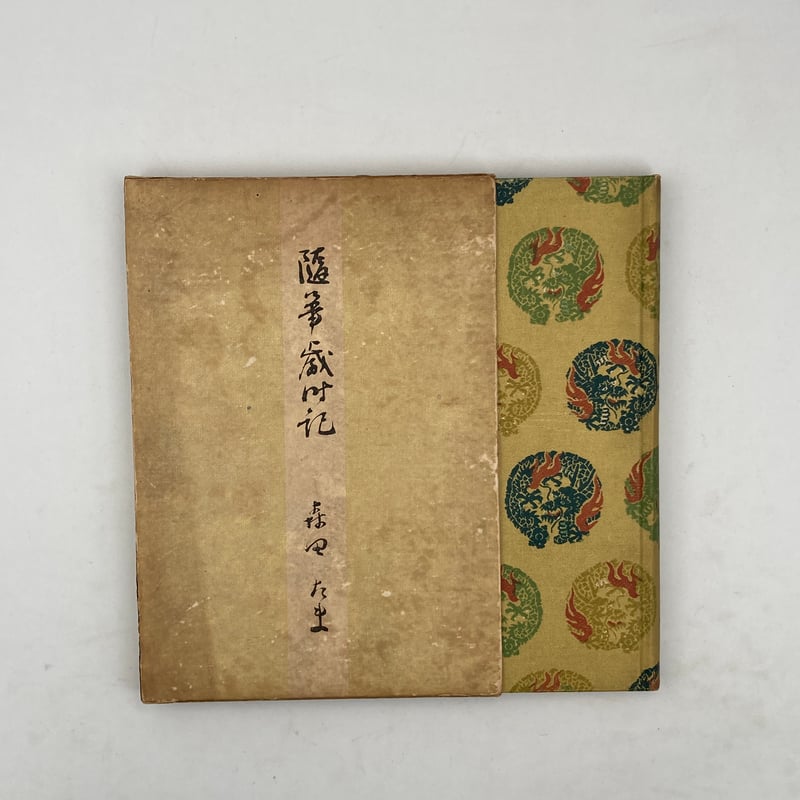 隨筆歳時記
森田たま